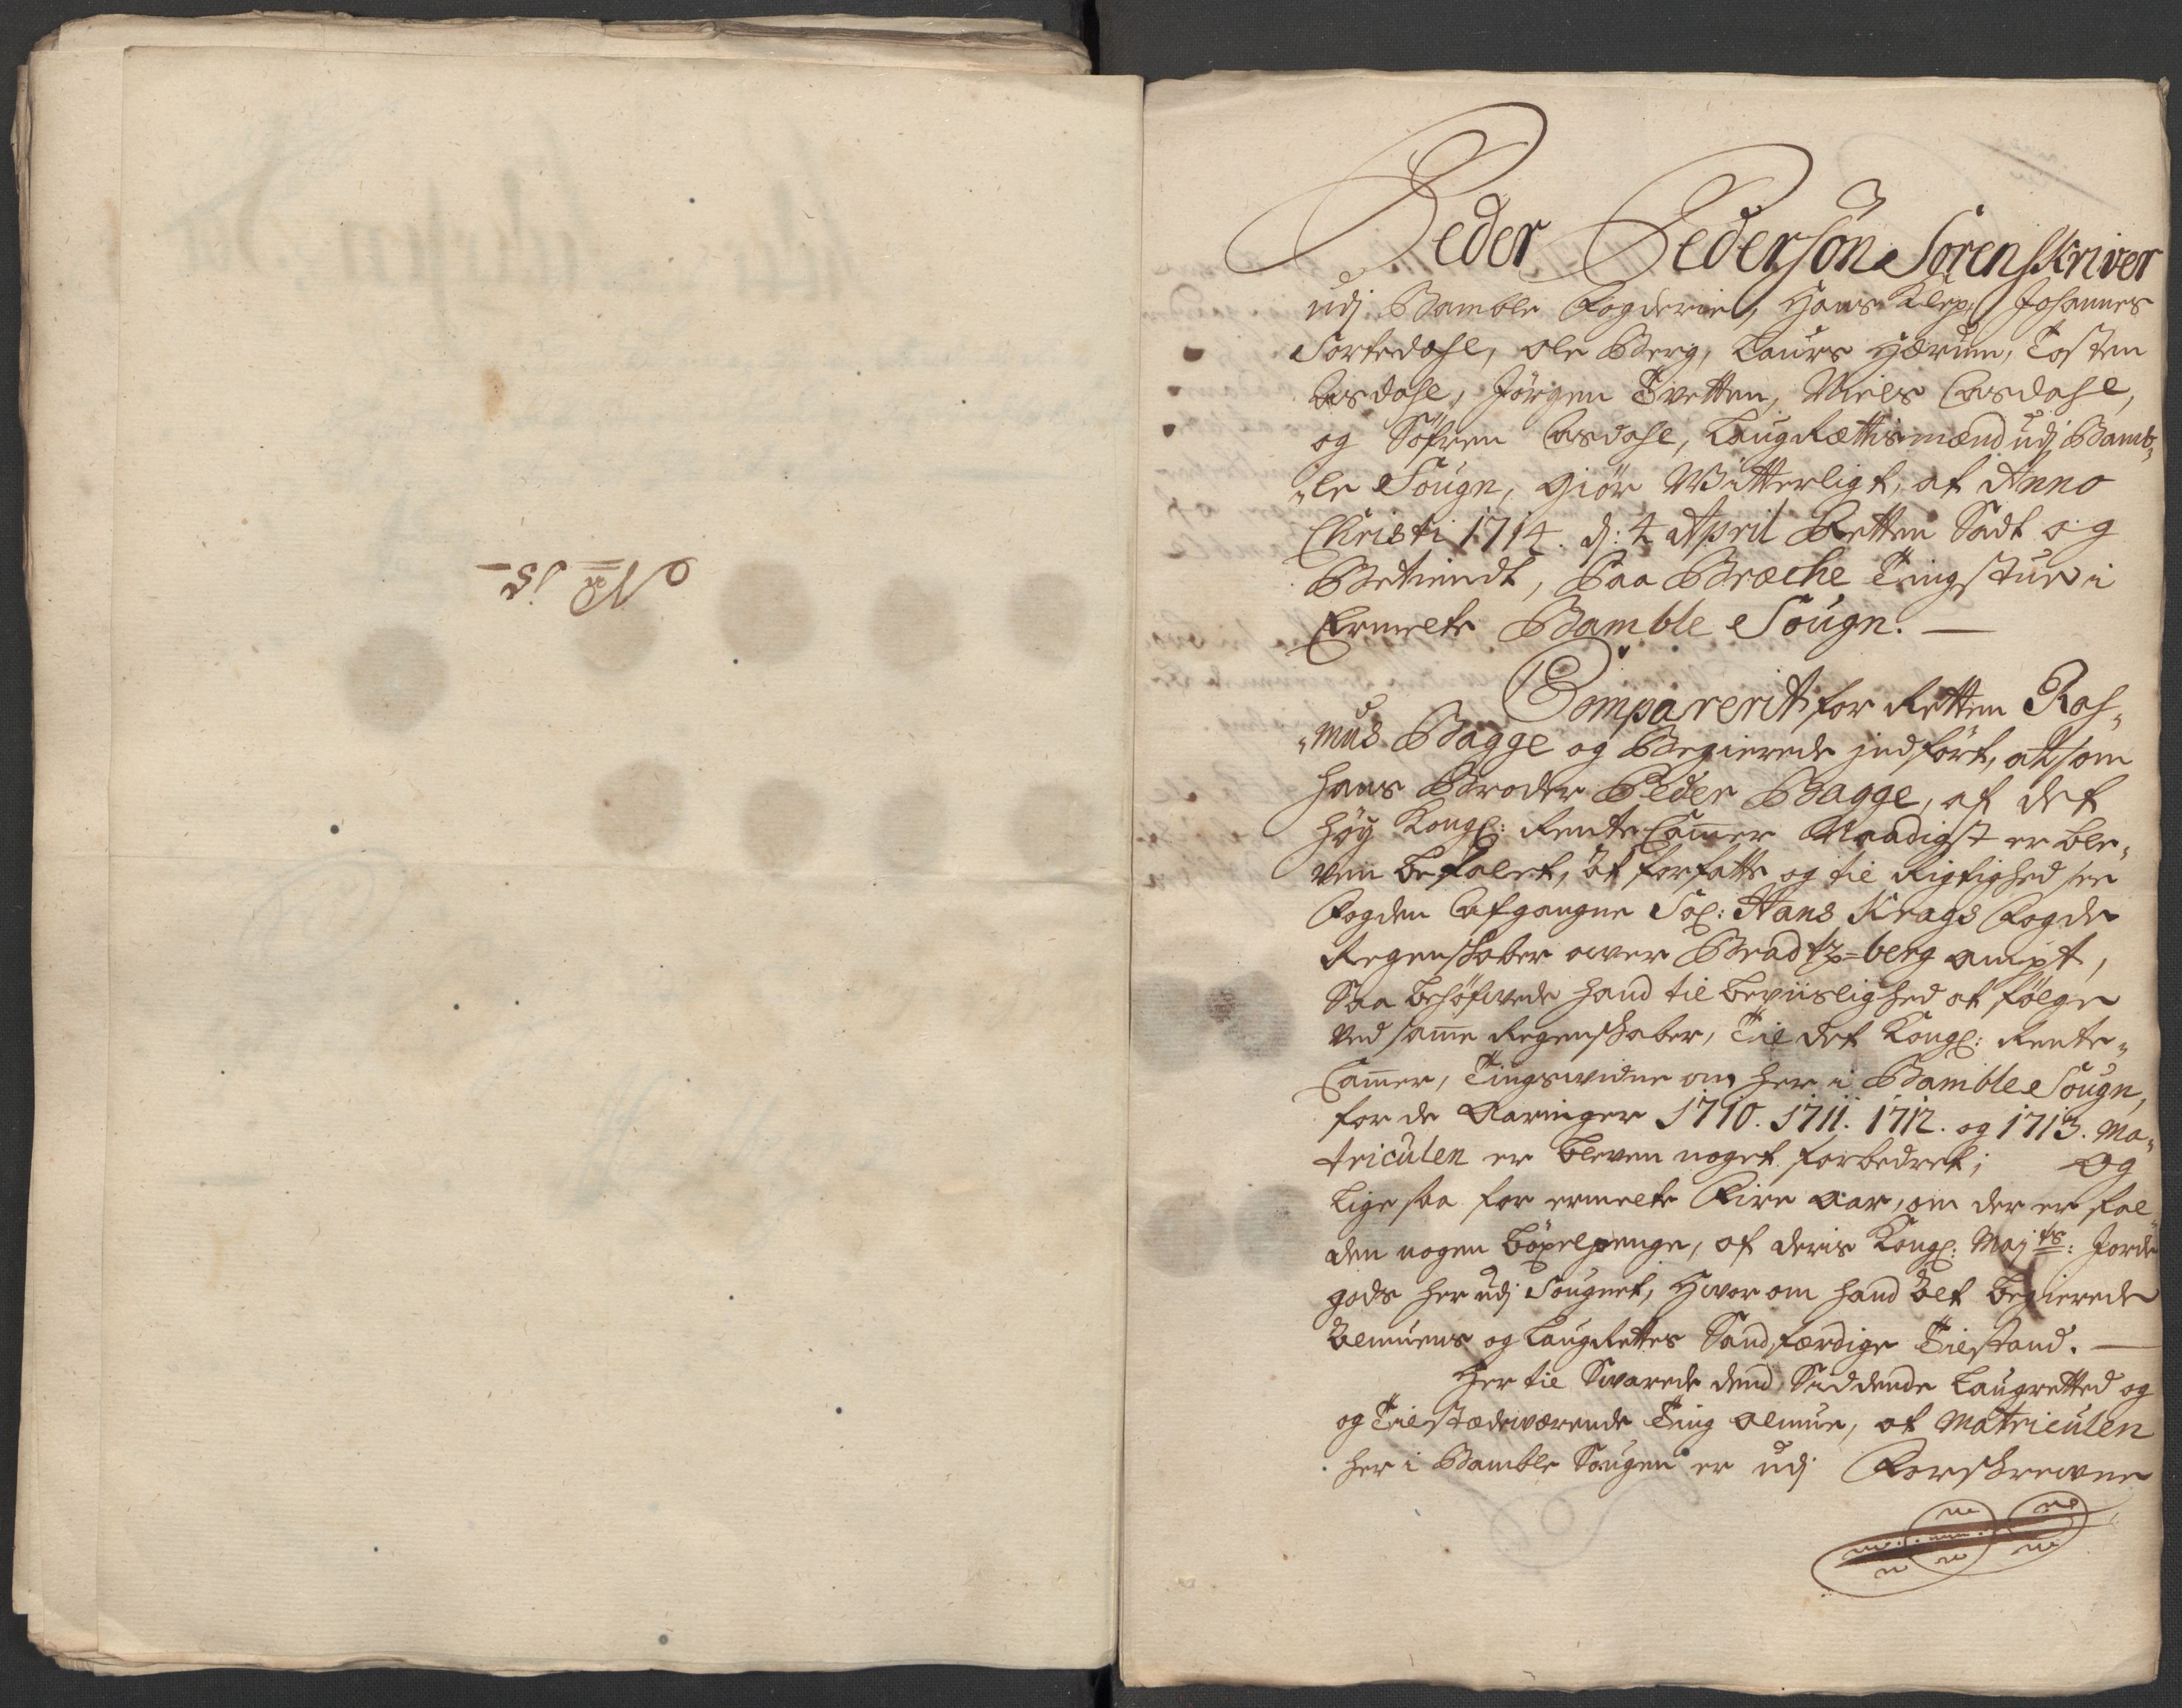 No 15
Peder Pedersön Sorenskriver
udj Bamble Fogderie, Hans Klep, Johannes
Sortedahl, Ole Berg, Laurs Hærum, Tosten
Aasdahl, Jörgen Tvetten, Niels Aasdahl,
og Söfren Aasdahl, Laugrættismænd udj Bamb¬
„le Sougn, Giör Witterligt, at Anno
Christi 1714. d: 4 April Retten Sadt og
Betiendt, Paa Bræche Tingstue i
Ermelte Bamble Sougn. —
Comparerit for Retten Ras¬
„mus Bagge og Begierede indfört, at som
hans Broder Peder Bagge, af det
höy Kongl: Rente Cam̄er Naadigst er ble¬
ven befalet, at forfatte og til Rigtighed see
Fogden Afgangne Sal: Hans Krags Fogde
Regenskaber over Bradtz=berg ampt,
Saa behöfvede hand til beviislighed at fölge
ved sam̄e Regenskaber, Til det Kongl: Rente¬
Cam̄er, Tingswidne om her i Bamble Sougn,
for de Aaringer 1710. 1711. 1712. og 1713. Ma¬
triculen er bleven noget forbedret; Og
lige saa for ermelte Fire Aar, om der er fal¬
den nogen böxelpenge, af deris Kongl: Majts: Jorde
gods her udj Sougnet, Hvorom hand alt begierede
Almuens og Laugrettes Sandfærdige Tilstand. —
Her til Svarede dend Siddende Laugretted og
og Tilstædeværende Ting almue, at Matriculen
her i Bamble Sougen er udj Forskrevne